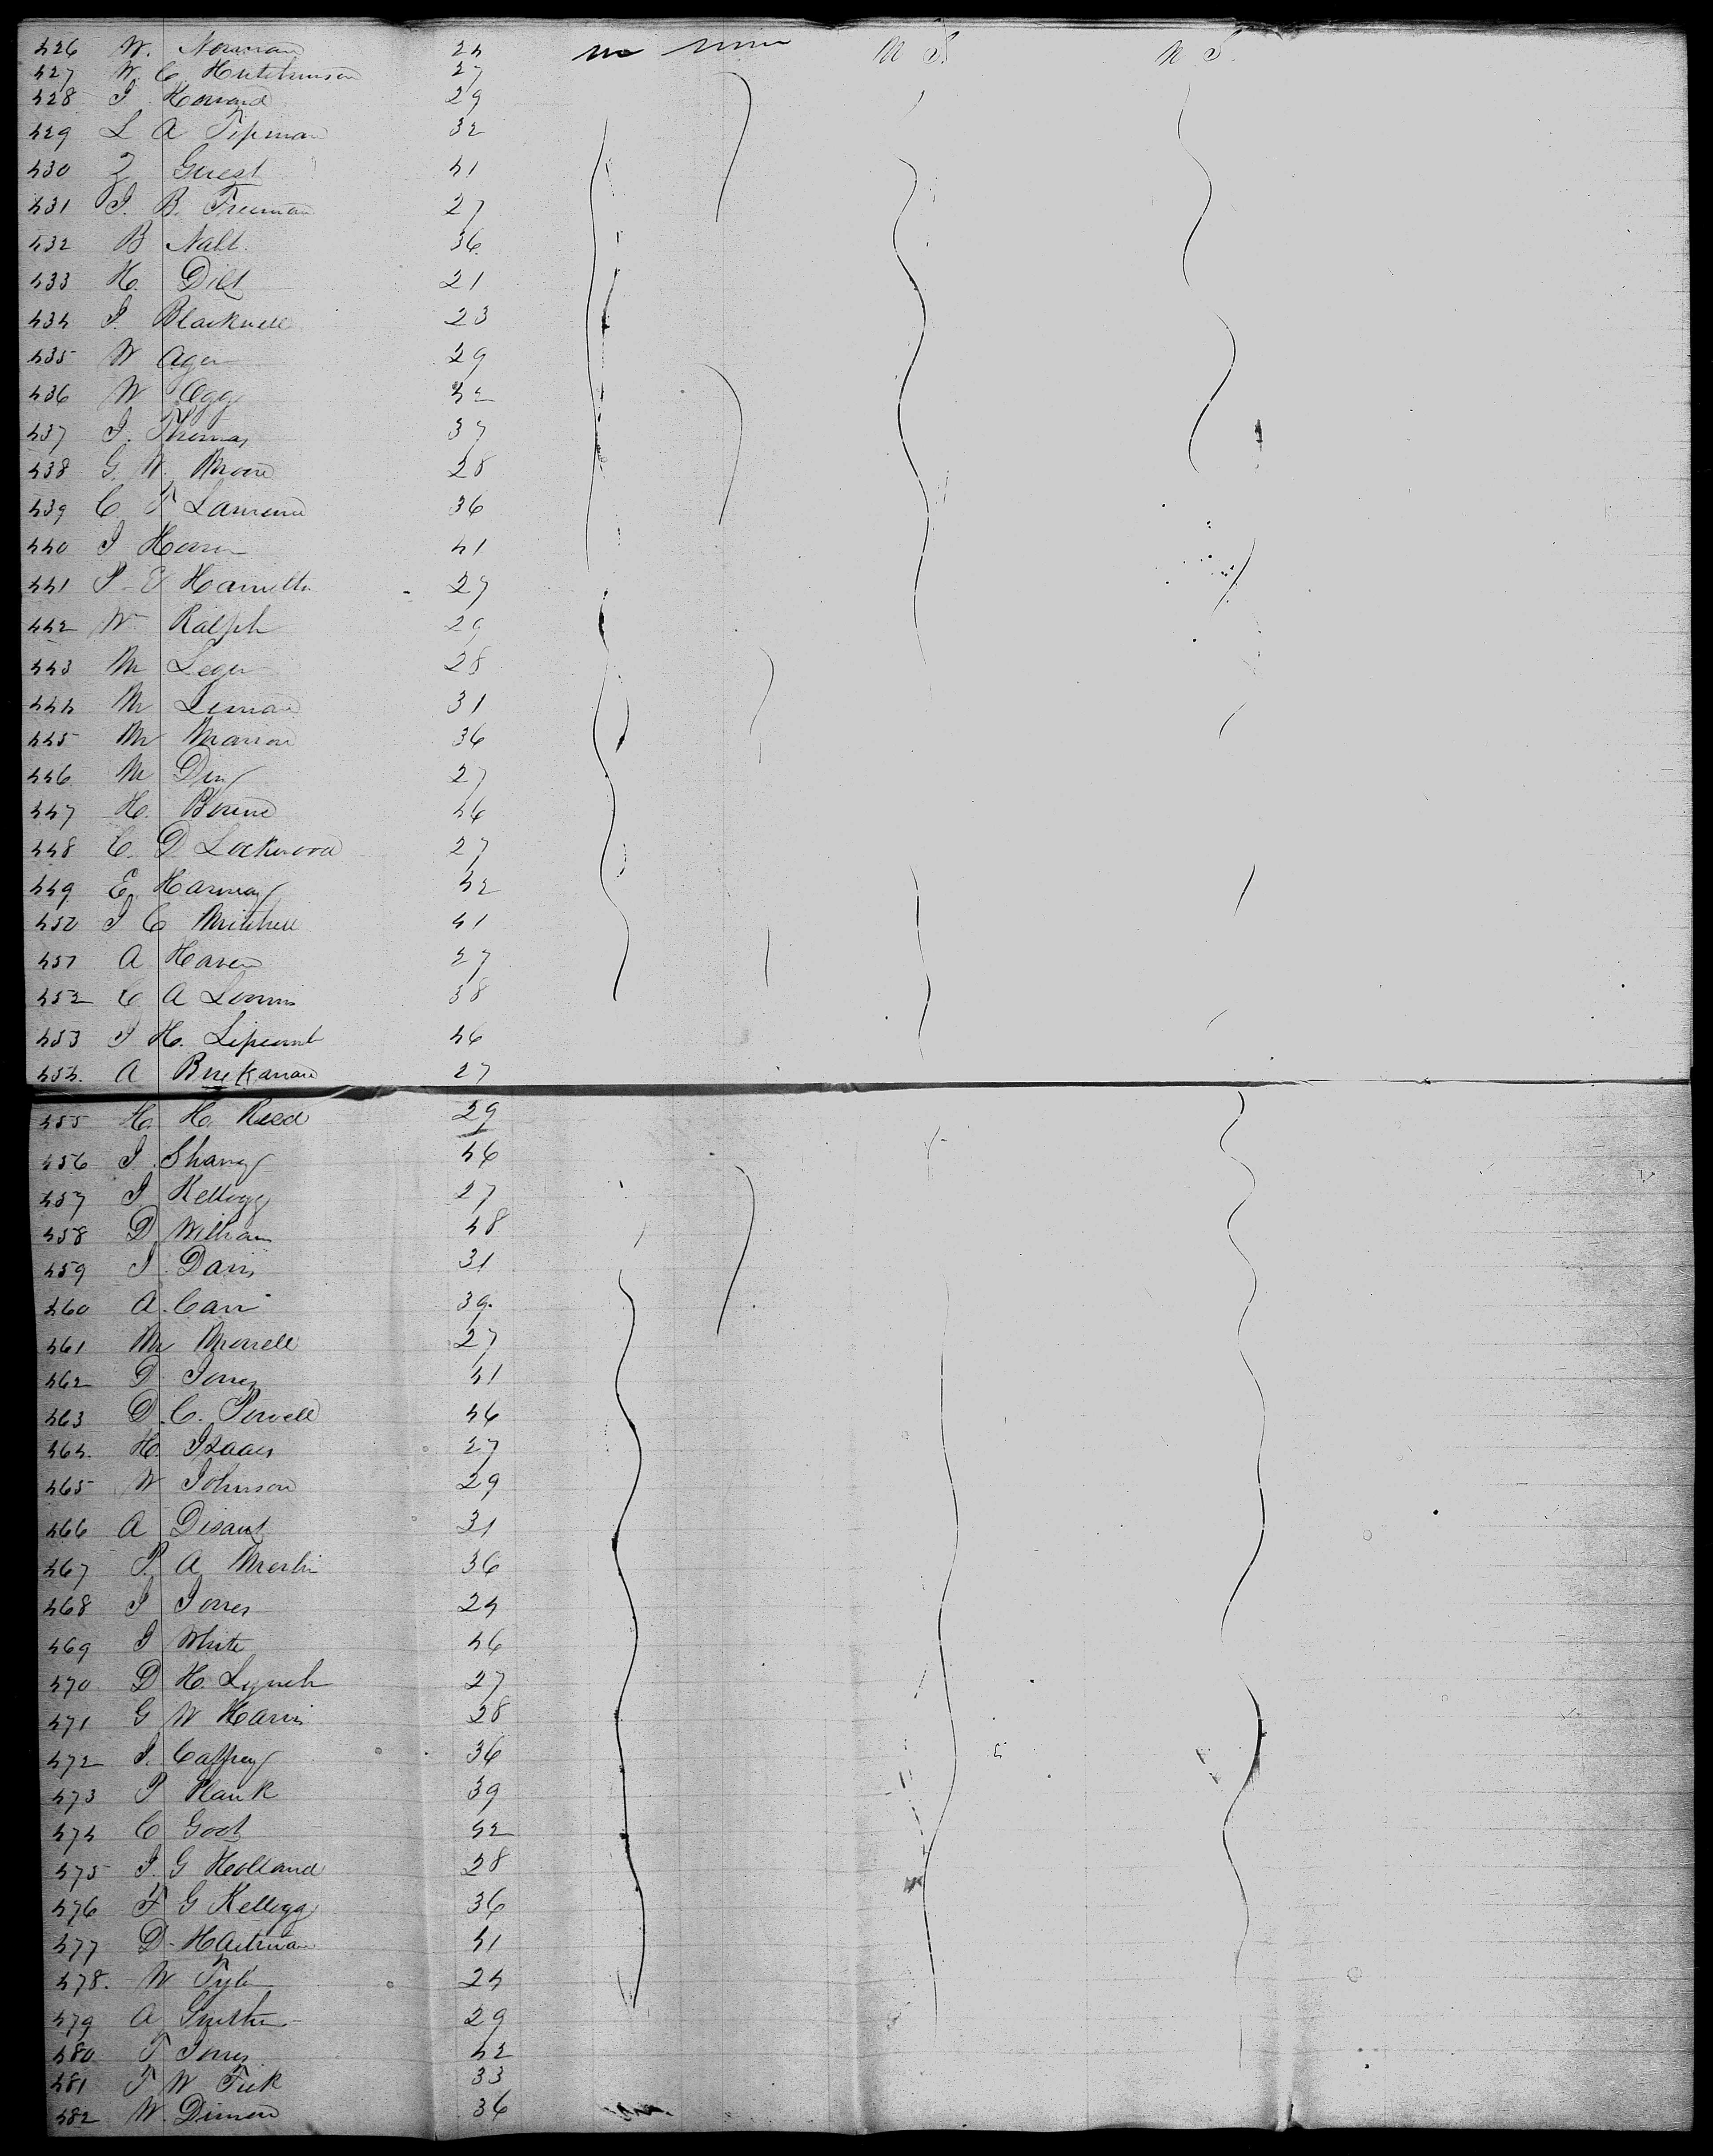 426 W. Norman 24 m none U S. U S.
427 W. C Hutchinson 27
428 J Howard 29
429 L A Tipman 32
430 Z Guest 41
431 J. B. Freeman 27
432 B Nalt. 36
433 H. Dilt 21
434 J. Blackwell 23
435 W Ager 29
436 W Ogg 42
437 J. Thomas 37
438 G. W. Moore 28
439 C. T Lawrence 36
440 J Horn 41
441 P E Hamilton 27
442 W Ralph 29
443 M Leger 28
444 M Leman 31
445 M Marrow 36
446 M Ding 27
447 H. Bourne 46
448 C. D Lockwood 27
449 E. Harvey 42
450 J C Mitchell 41
451 A Haven 27
452 C A Loomis 38
453 J H. Lipscomb 46
454. A Buckanan 27
455 H. H. Reed 29
456 J. Shany 46
457 J Kellogg 27
458 D William 48
459 J. Davis 31
460 A. Carr 39.
461 M Morrell 27
462 D Jones 41
463 D. C. Powell 46
464. H. Isaacs 27
465 W Johnson 29
466 A Disant 31
467 P. A Merlin 36
468 J Jones 24
469 J White 46
470 D H. Lynch 27
471 G W Harris 28
472 J. Caffrey 36
473 P Plank 39
474 C Goot 42
475 J. G Holland 28
476 F G Kellogg 36
477 D. Hartman 41
478. W Tyler 24
479 A 29
480 T Jones 42
481 F W Fisk 33
482 W. Dimon 36